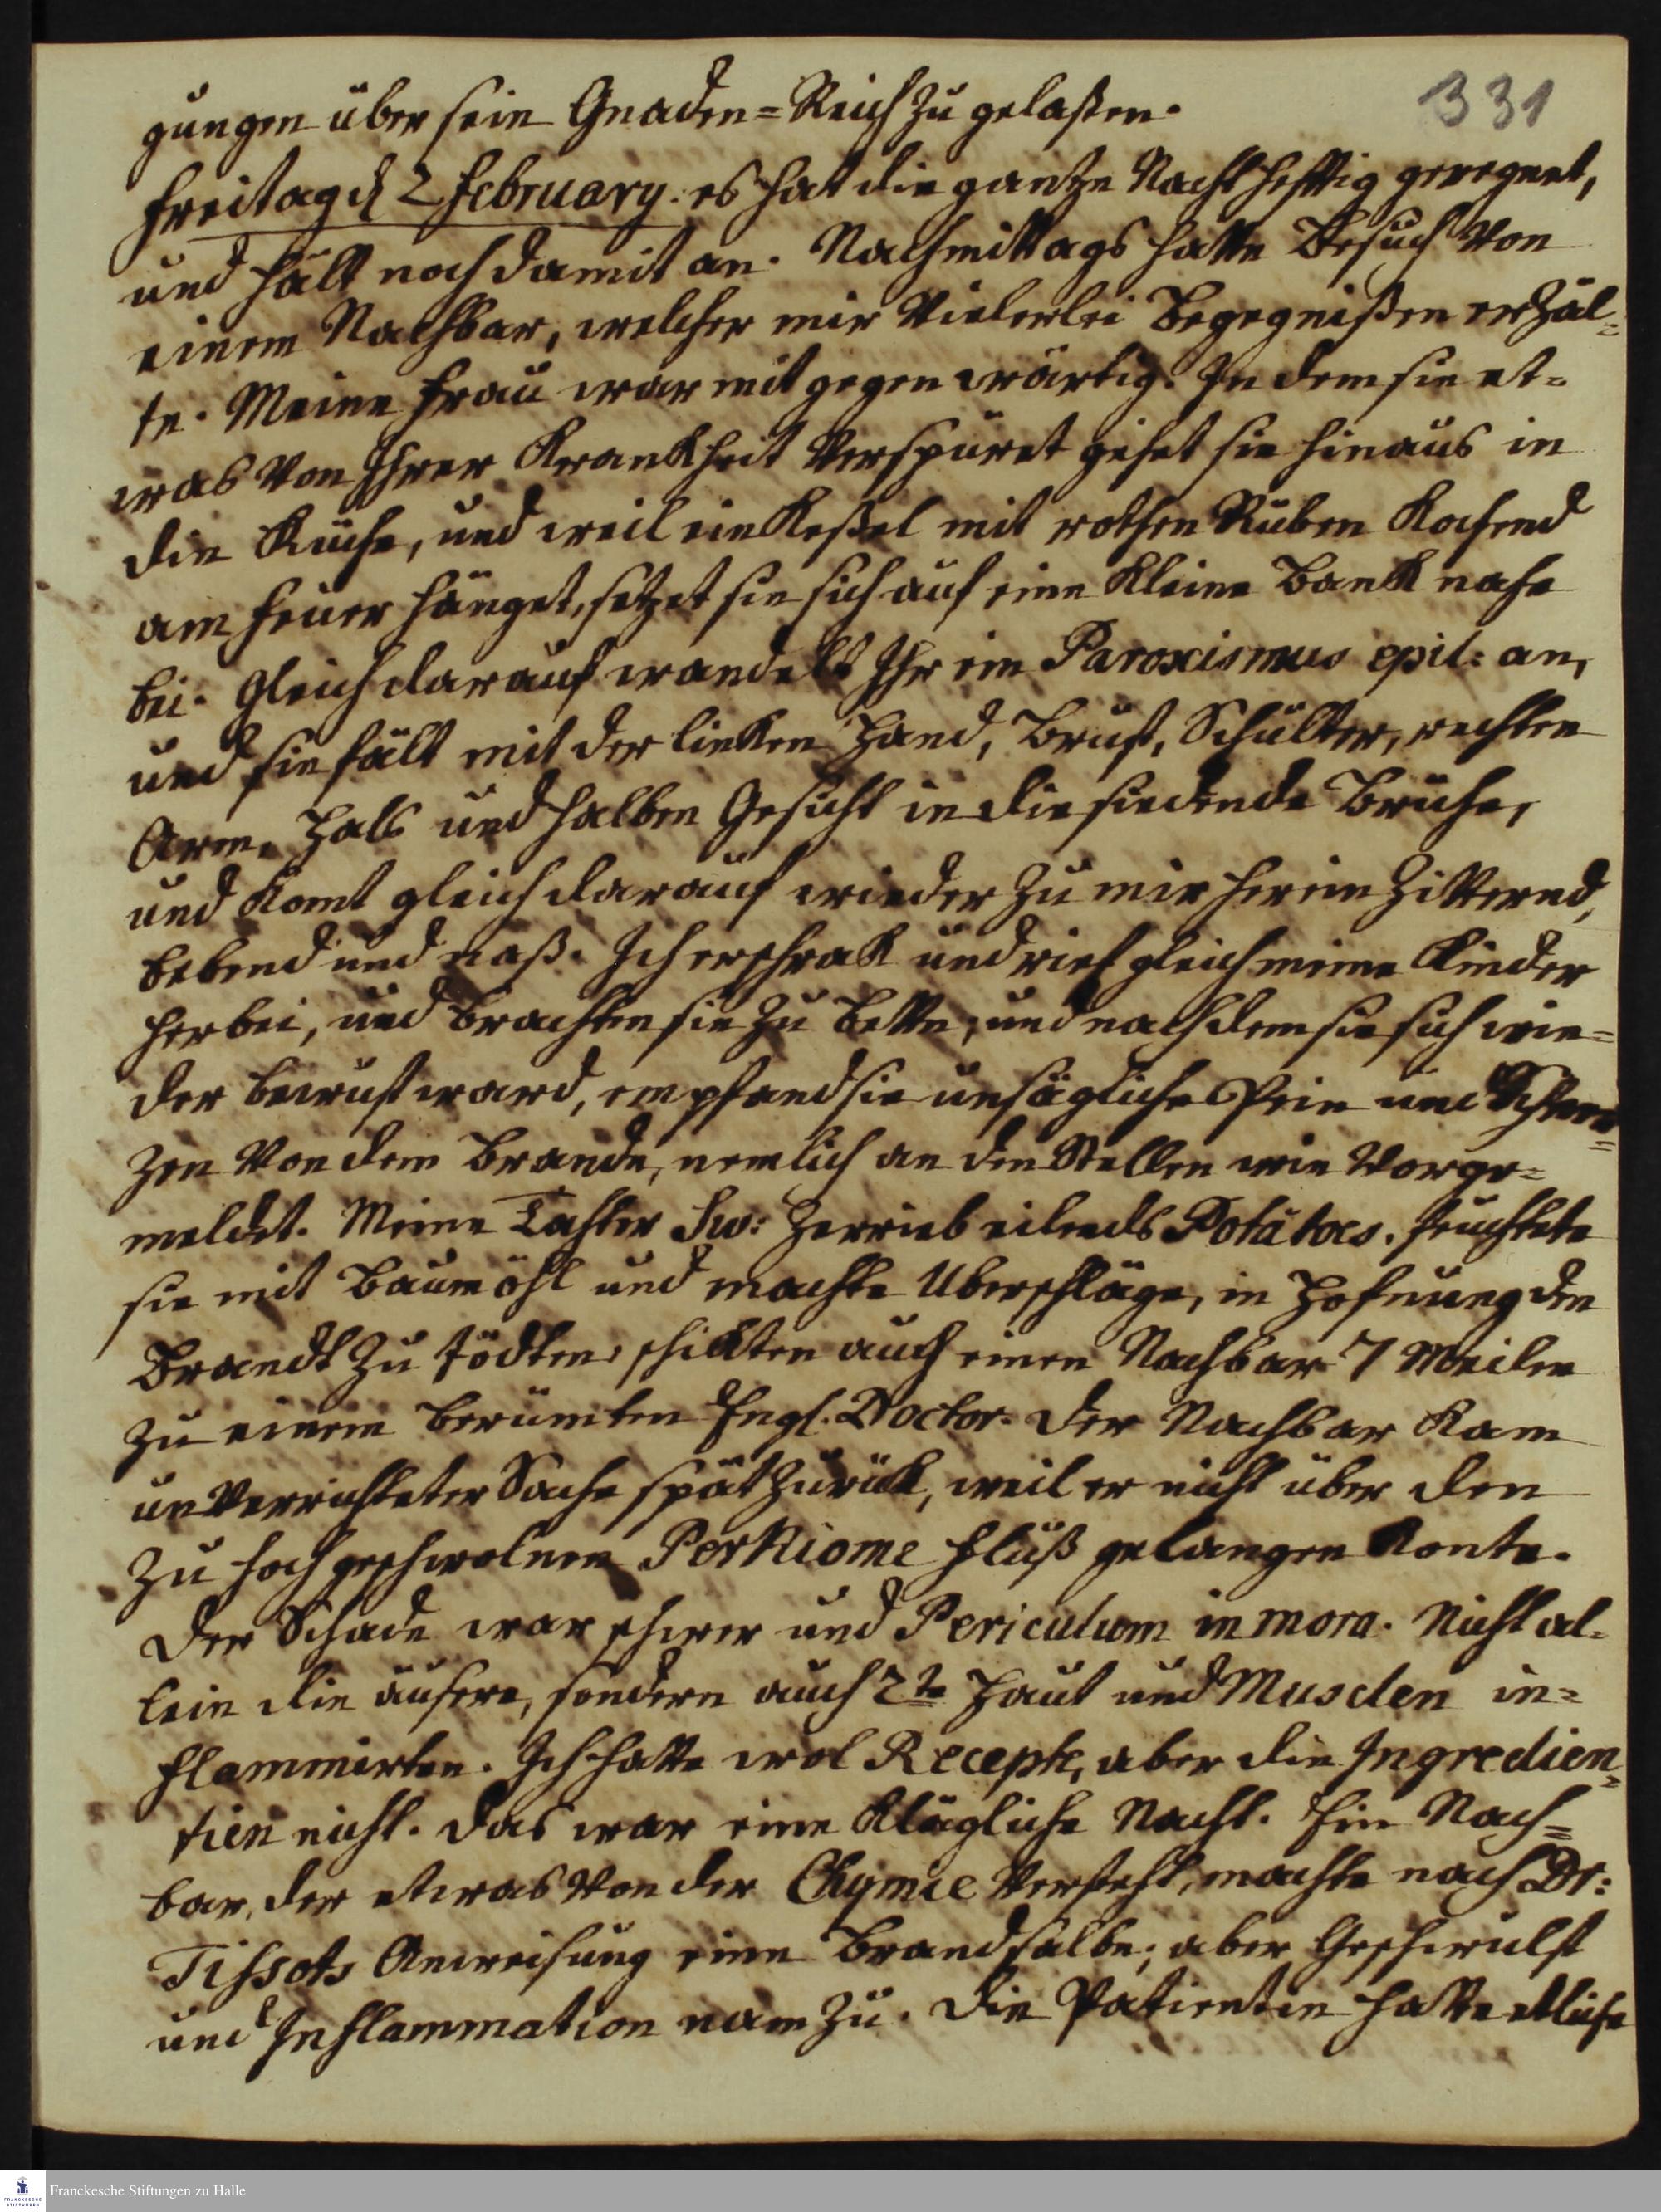 331
gungen über sein Gnaden=Reich zu gelaßen.
Freitag d 2 February: es hat die gantze Nacht hefftig geregnet,
und hält noch damit an. Nachmittags hatte Besuch von
einem Nachbar, welcher mir vielerlei Begegnißen erzäl=
te. Meine Frau war mit gegenwärtig. In dem sie et=
was von Ihrer Krankheit verspüret gehet sie hinaus in
die Küche, und weil ein Keßel mit rothen Rüben kochend
am Feuer hänget, setzet sie sich auf eine kleine Bank nahe
bei. Gleich darauf wandelt Ihr ein Paroxismus epil: an,
und sie fält mit der linken Hand, Brust, Schulter, rechten
Arm, Hals und halben Gesicht in die siedende Brühe,
und komt gleich darauf wieder zu mir herein zitternd,
bebend und naß. Ich erschrak und rief gleich meine Kinder
herbei, und brachten sie zu Bette, und nachdem sie sich wie=
der bewust ward, empfand sie unsägliche Pein und Schmer=
zen von dem Brande, nemlich an den Stellen wie vorge=
meldet. Meine Tochter Sw: zerrieb eilends Potätoes, feuchtete
sie mit Baumöhl und machte Uberschläge, in Hofnung den
Brandt zu tödten, schikten auch einen Nachbar 7 Meilen
zu einem berümten Engl. Doctor. Der Nachbar kam
unverrichteter Sache spät zurük, weil er nicht über den
zu hoch geschwolnen Perkiome Fluß gelangen konte.
Der Schade war schwer und Periculum in mora. Nicht al=
lein die äusere, sondern auch 2te Haut und Musclen in=
flammirten. Ich hatte wol Recepte, aber die Ingredien=
tien nicht. Das war eine klägliche Nacht. Ein Nach=
bar, der etwas von der Chymie versteht, machte nach Dr:
Tissots Anweisung eine Brandsalbe; aber Geschwulst
und Inflammation nam zu. Die Patientin hatte etliche
Franckesche Stiftungen zu Halle
FRANCKESCHE
STIFTUNGEN